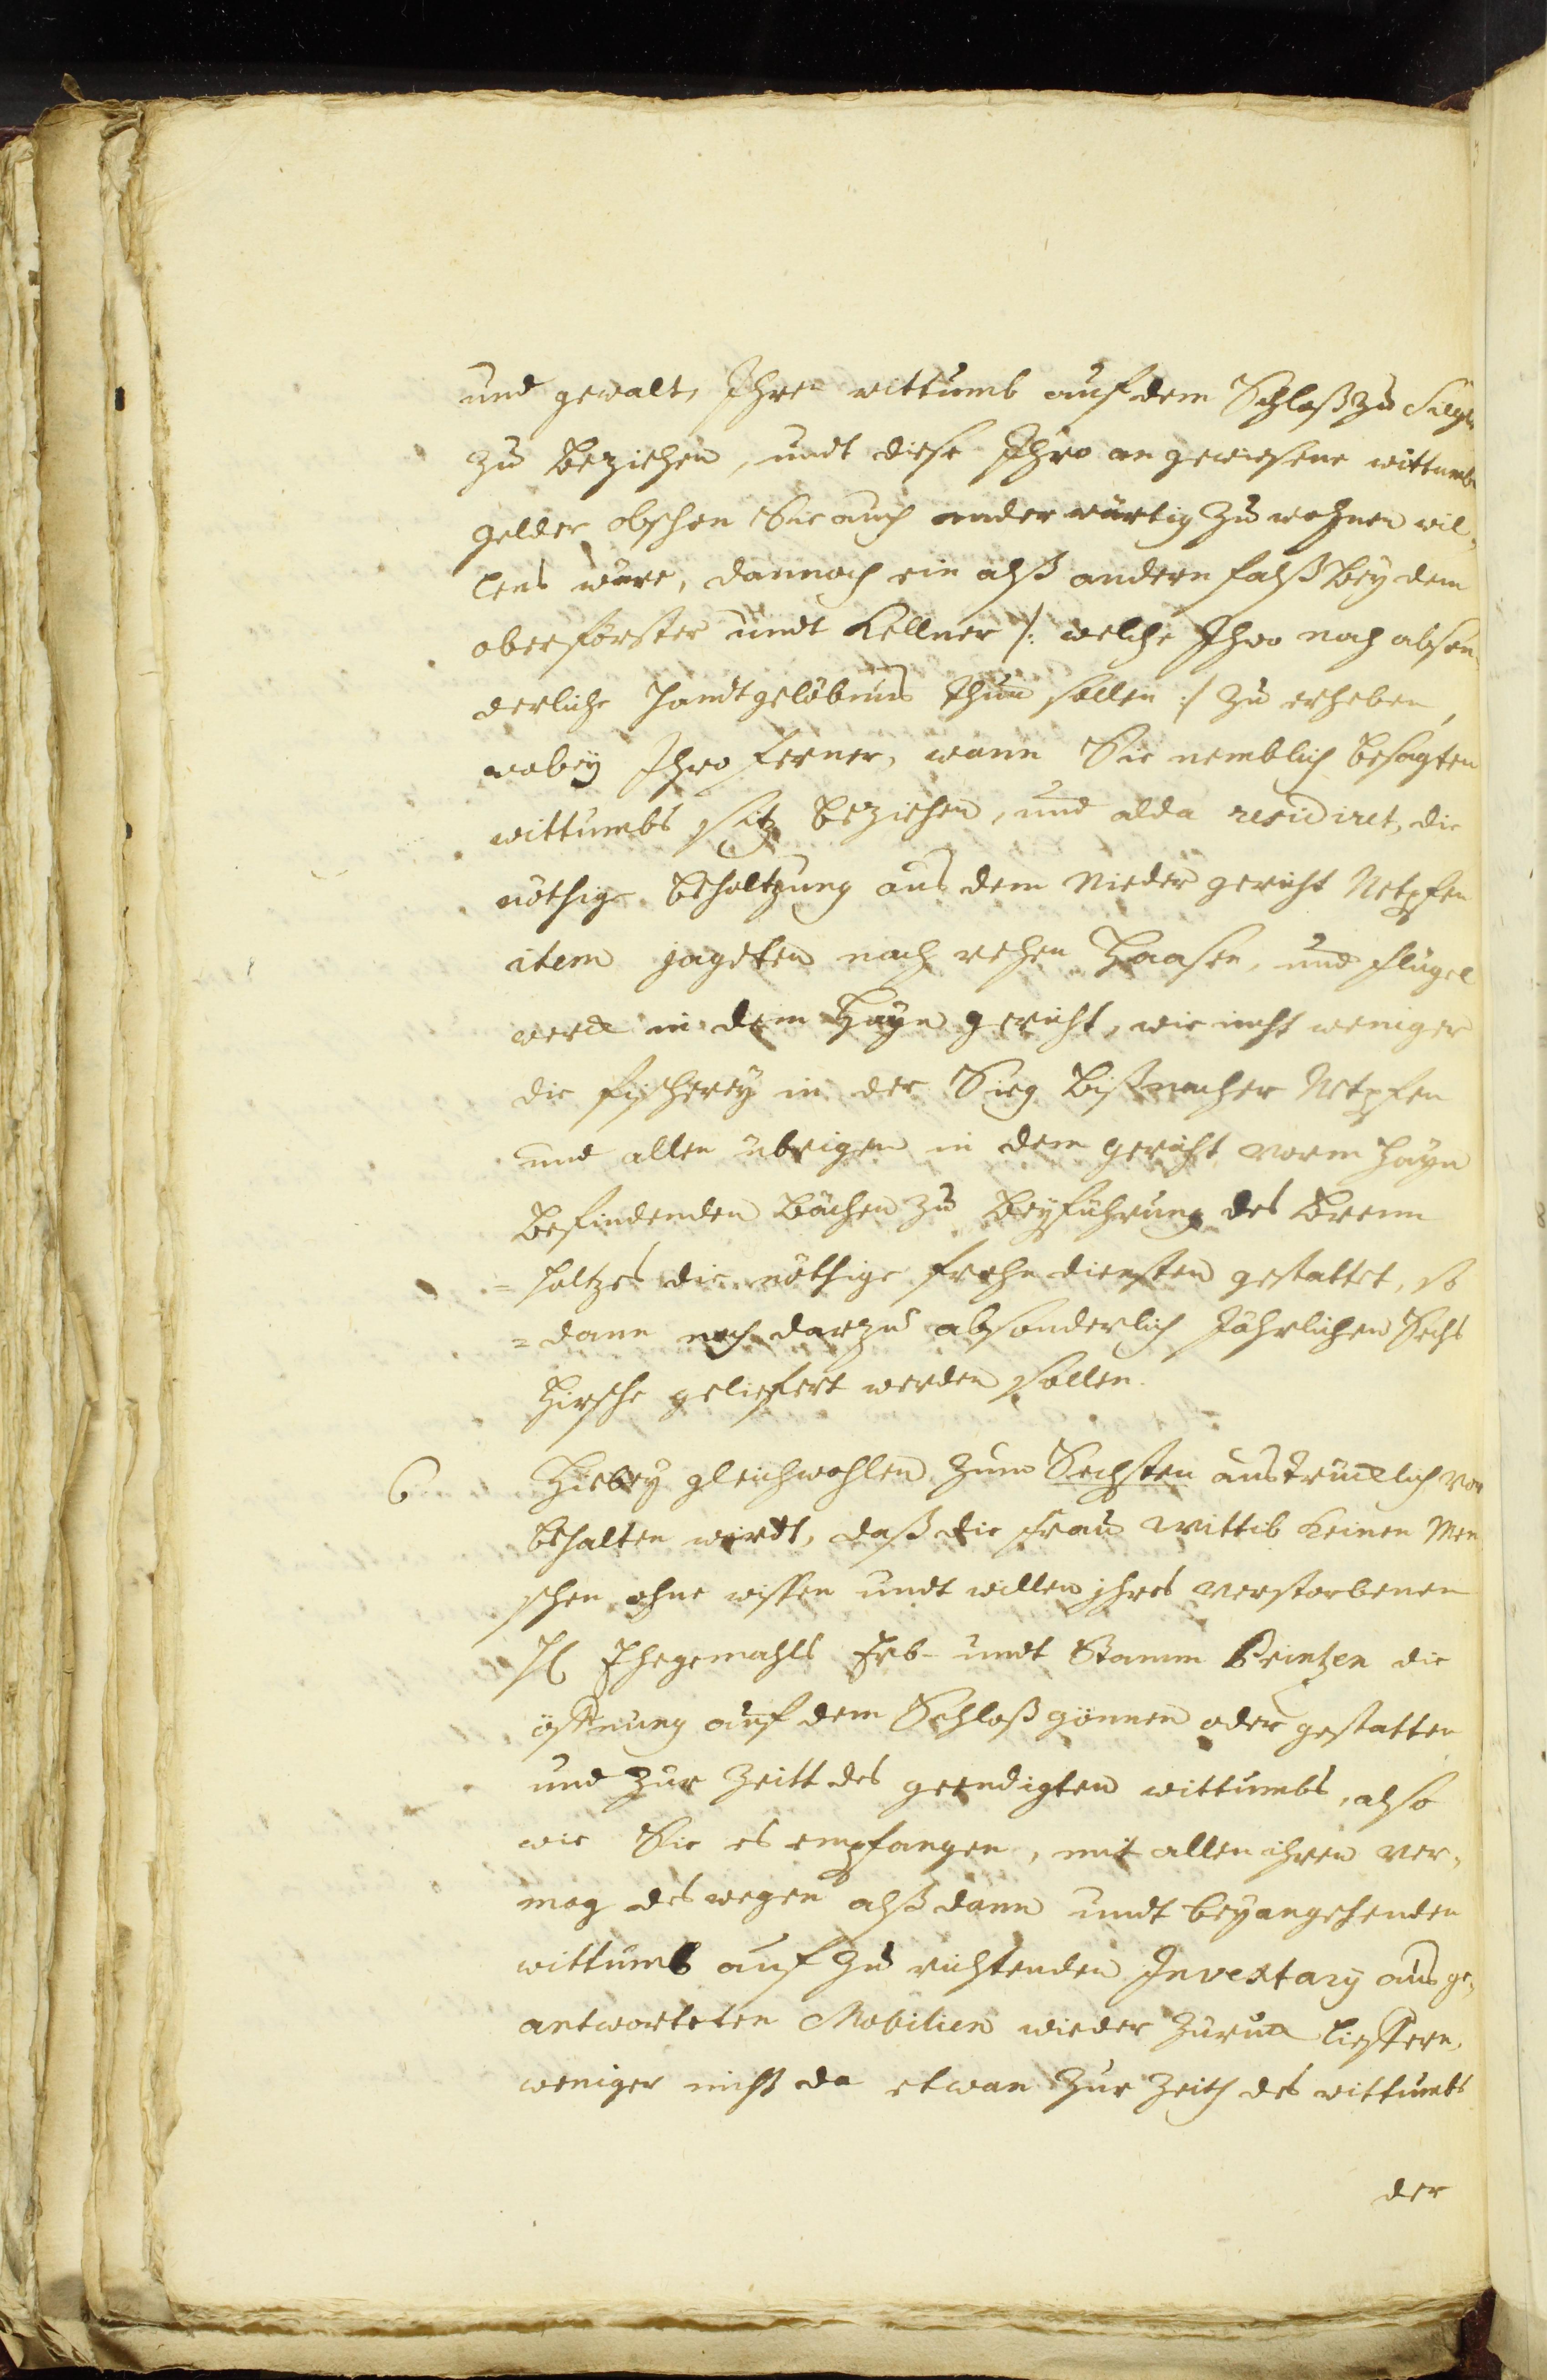 und gewalt, Ihre wittumb auf dem Schloß zu Siegen
zu beziehen, undt diese Ihro angewiesene wittumbs
gelder obschon Sie auch anderwärtig zu wohnen wil-
lens wäre, dannoch ein alß andern falß bey dem
oberförster undt Kellner /: welche Ihro noch abson-
derliche handtgelöbnus thun sollen :/ zu erheben,
wobey Ihro ferner, wann Sie nemblich besagten
wittumbs sitz beziehen, und alda residiret, die
nöthige beholtzung aus dem Nieder gericht Netpfen
item jagdten nach rehen Haasen, und flügel
werck in dem Hayn gericht, wie nicht weniger
die fischerey in der Sieg biß nacher Netpfen
und allen übrigen in dem gericht vorm Hayn
befindenden bächen zu beyführung des brenn
= holtzes die nöthige frohn diensten gestattet, so
= dann noch darzu absonderlich Jährlichen Sechs
Hirsche geliefert werden sollen.
6 Hiebey gleichwohlen zum Sechsten austrücklich vor
behalten wirdt, daß die frau Wittib keinen Men
schen ohne wissen undt willen ihres verstorbenen
H Ehegemahls Erb- undt Stamm Printzen die
öffnung auf dem Schloß gönnen oder gestatten
und zur Zeitt des geendigten wittumbs, also
wie Sie es empfangen, mit allen ihren ver-
mög deswegen alßdann undt bey angehenden
wittumb auf zu richtenden Inventarÿ aus ge-
antworteten Mobilien wieder zuruck lieffern,
weniger nicht da etwan zur Zeith des wittumbs
der